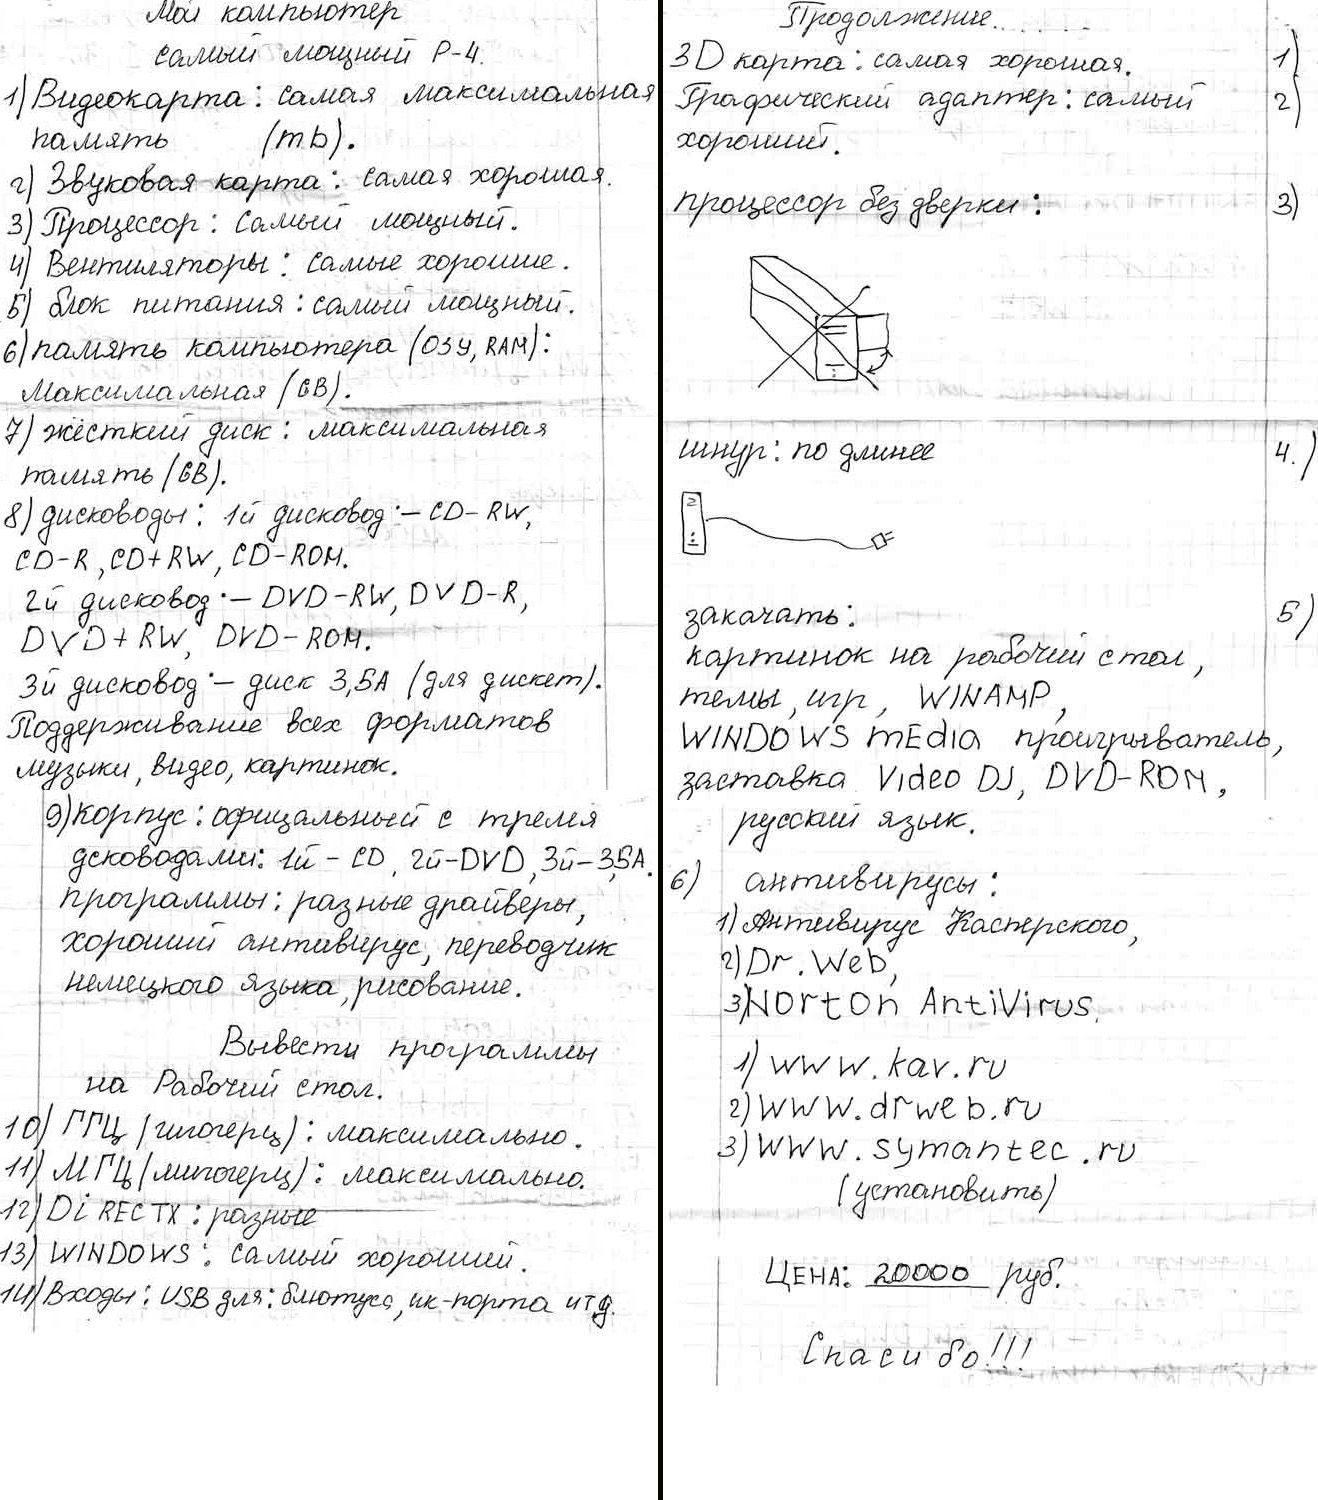 Мой компьютер
самый мощный P-4.
1) Видеокарта: самая максимальная
память (mb).
2) Звуковая карта: самая хорошая.
3) Процессор: самый мощный.
4) Вентиляторы: самые хорошие.
5) блок питания: самый мощный.
6) память компьютера (ОЗУ, RAM):
Максимальная (GB).
7) жёсткий диск: максимальная
память (GB).
8) дисководы: 1й дисковод:– CD-RW,
CD-R, CD+RW, CD-ROM.
2й дисковод:– DVD-RW, DVD-R,
DVD+RW, DVD-ROM.
3й дисковод:– диск 3,5A (для дискет).
Поддерживание всех форматов
музыки, видео, картинок.
9) корпус: офицальный с тремя
дсководами: 1й - CD, 2й-DVD, 3й-3,5A.
программы: разные драйверы,
хороший антивирус, переводчик
немецкого языка, рисование.
Вывести программы
на Рабочий стол.
10) ГГЦ (гигогерц): максимально.
11) МГЦ (мигогерц): максимально.
12) DiRECTX: разные
13) WINDOWS: самый хороший.
14) Входы: USB для: блютуса, ик-порта итд.
Продолжение......
3D карта: самая хорошая. 1)
Графический адаптер: самый 2)
хороший.
процессор без дверки: 3)
шнур: по длинее 4.)
закачать: 5)
картинок на рабочий стол,
темы, игр, WINAMP,
WINDOWS mEdiA проигрыватель,
заставка Video DJ, DVD-ROM,
русский язык.
6) антивирусы:
1) Антивирус Касперского,
2) Dr. Web,
3) Norton AntiVirus.
1) www.kav.ru
2) www.drweb.ru
3) www.symantec.ru
(установить)
ЦЕНА: 20000 руб.
Спасибо!!!